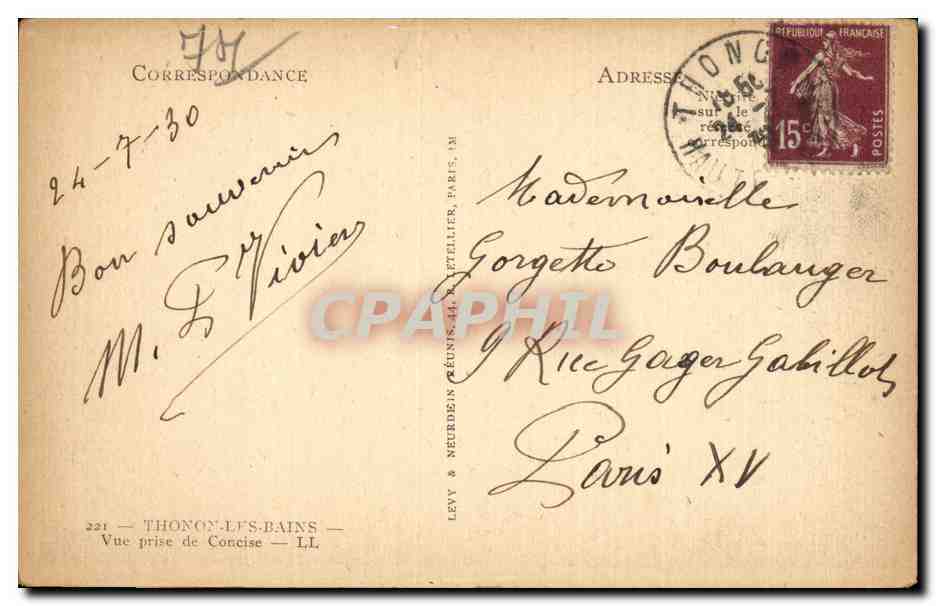 74
CORRESPONDANCE
24-7-30
Bon souvenir
M. Vivier
221 — THONON-LES-BAINS —
Vue prise de Concise — LL
LEVY & NEURDEIN RÉUNIS, 44, R. LETELLIER, PARIS, IM
CPAPHIL
ADRESSE
THONON
HAU
RÉPUBLIQUE FRANÇAISE
15c
POSTES
sur le
Mademoiselle
Gorgette Boulanger
9 Rue Gager Gabillot
Paris XV